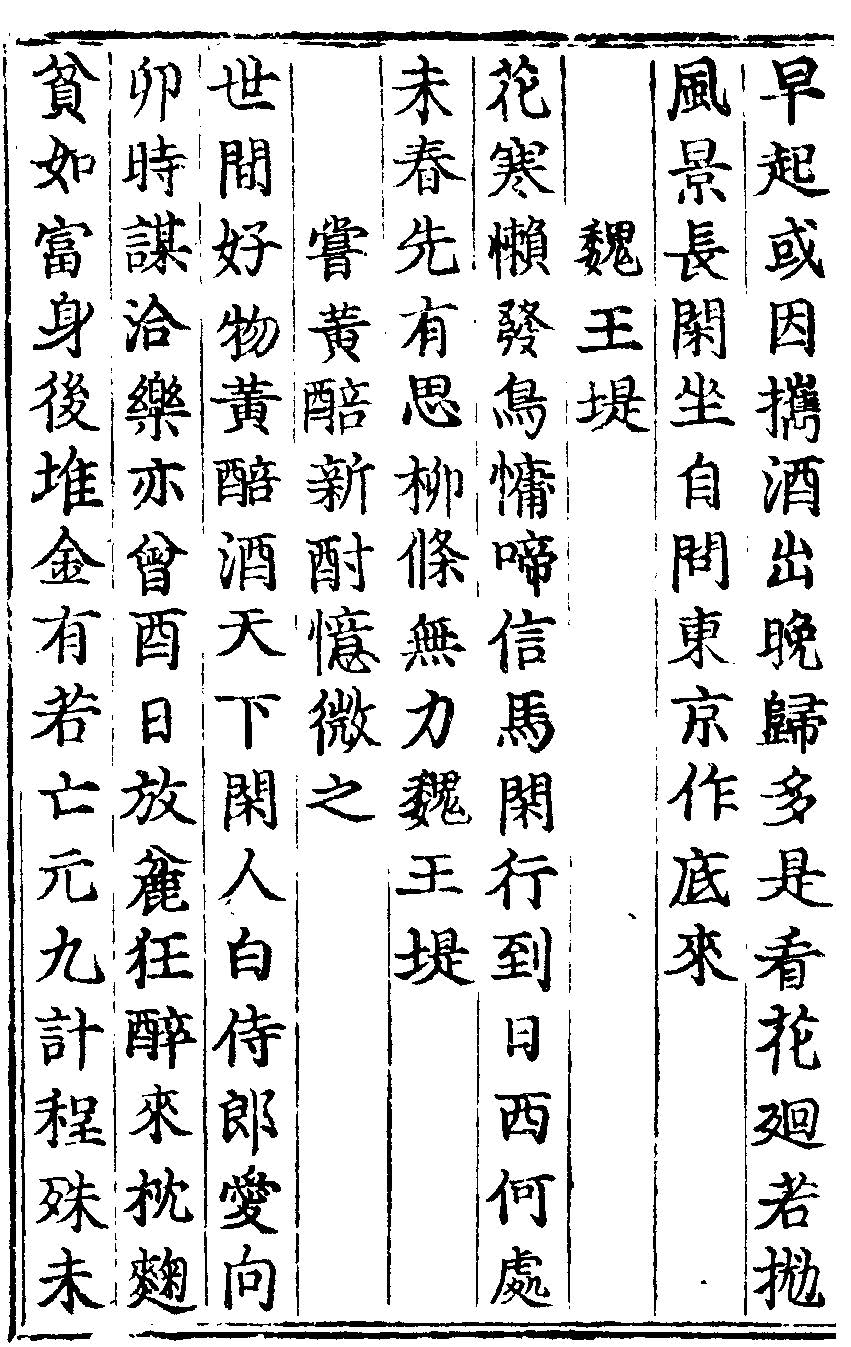 早起或因攜酒出晚歸多是看花廻若拋
風景長閑坐自問東京作底來
魏王堤
花寒懶發鳥慵啼信馬閑行到日西何處
未春先有思柳條無力魏王堤
嘗黃醅新酎憶微之
世間好物黃醅酒天下閑人白侍郎愛向
卯時謀洽樂亦曾酉日放麄狂醉來枕麴
貧如富身後堆金有若亡元九計程殊未